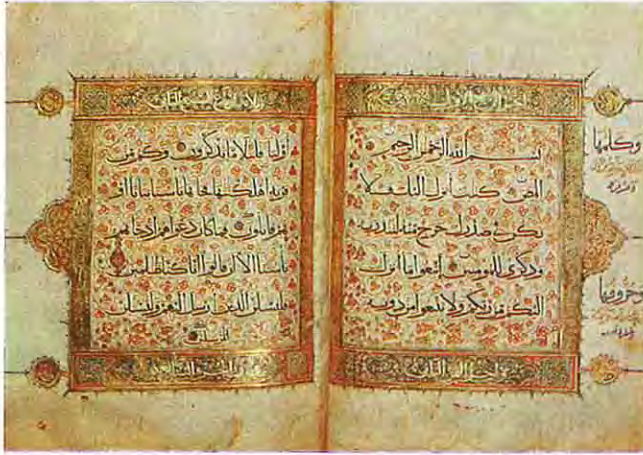 بسم الله الرحمن الرحيم
المص كتب أنزل إليك فلا
يكن في صدرك حرج منه لتنذر به
وذكرى للمؤمنين اتبعوا ما أنزل
إليكم من ربكم ولا تتبعوا من دونه
وكلمها
حروفها
أولياء قليلا ما تذكرون وكم من
قرية أهلكنها فجاءها بأسنا بياتا أو
هم قائلون فما كان دعواهم إذ جاءهم
بأسنا إلا أن قالوا إنا كنا ظلمين
فلنسئلن الذين أرسل إليهم ولنسئلن
المرسلين